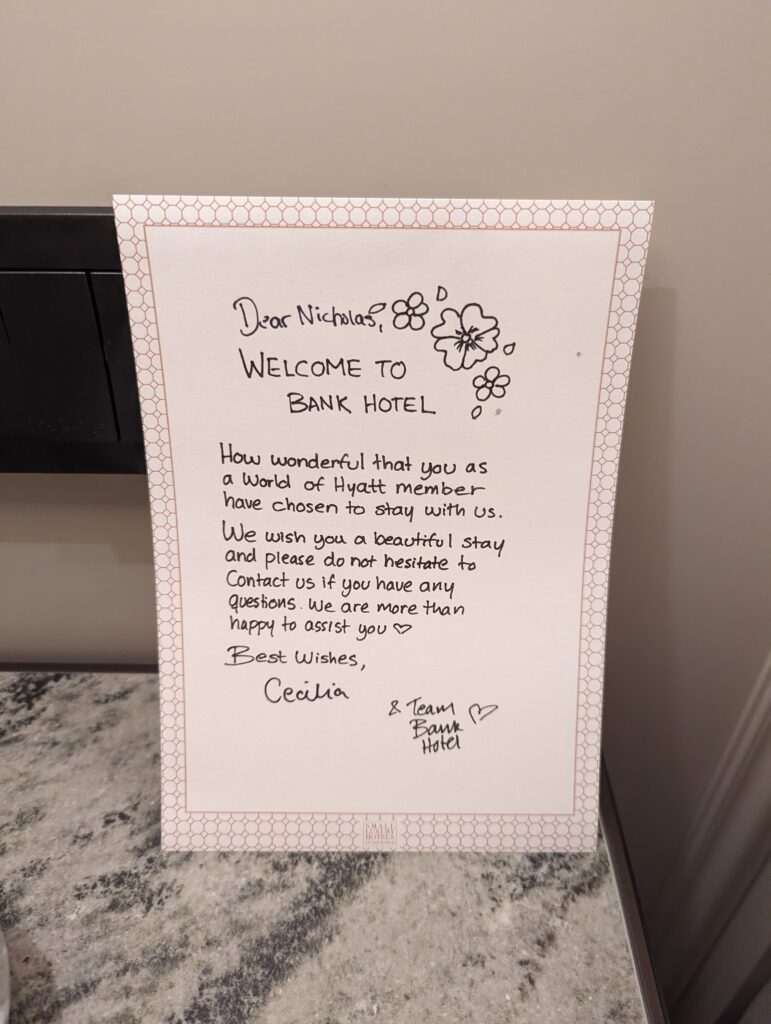 Dear Nicholas,
WELCOME TO
BANK HOTEL
How wonderful that you as
a World of Hyatt member
have chosen to stay with us.
We wish you a beautiful stay
and please do not hesitate to
Contact us if you have any
questions. We are more than
happy to assist you ♡
Best Wishes,
Cecilia
& Team ♡
Bank
Hotel
SMALL
HOTELS